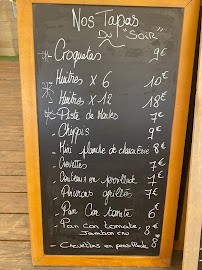 Nos Tapas
Du "Soir"
Croquetas 9€
Huîtres X 6 10€
Huîtres X 12 18€
Piste de Moules 7€
Chippis 9€
Mini planche de charcuterie 8€
Crevettes 7€
Couteaux en persillade 7€
Poivrons grillés 7€
Pan Con tomate 6€
Pan con tomate, 8€
Jambon cru
Crevettes en persillade 8€